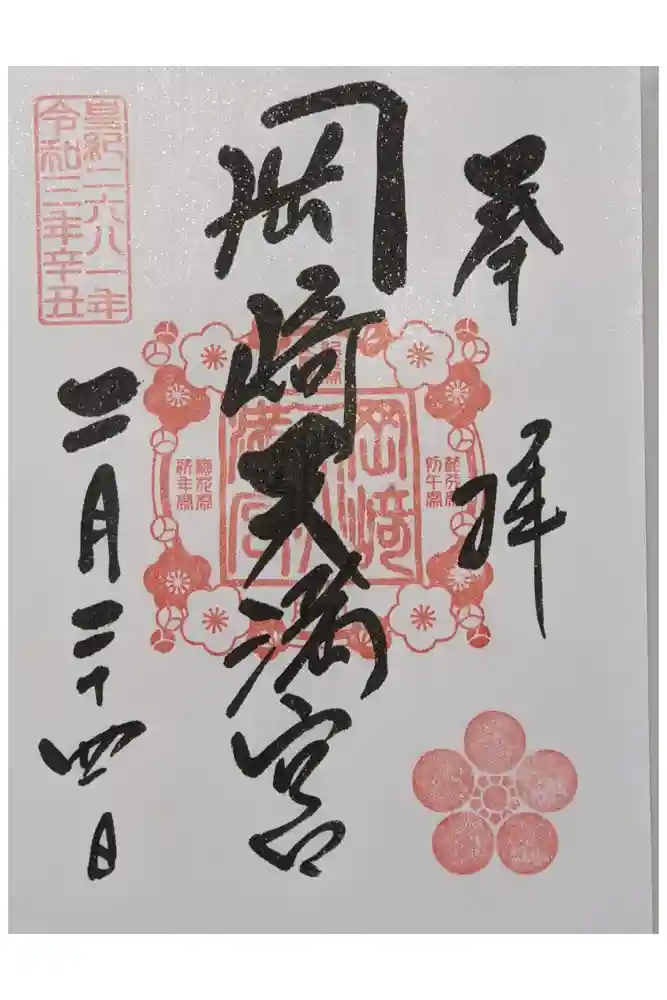 奉拝
岡崎天満宮
岡﨑
天満宮
皇紀二六八一年
令和三年辛丑
二月二十四日